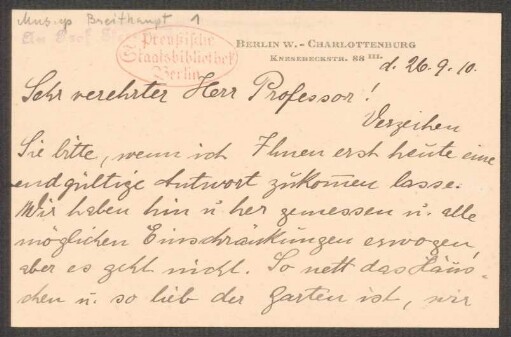 Mus. ep Breithaupt 1
Preußische
Staatsbibliothek
Berlin
BERLIN W. - CHARLOTTENBURG
KNESEBECKSTR. 88 III.
d. 26. 9. 10.
Sehr verehrter Herr Professor!
Verzeihen
Sie bitte, wenn ich Ihnen erst heute eine
endgültige Antwort zukommen lasse.
Wir haben hin u. her gemessen u. alle
möglichen Einschränkungen erwogen,
aber es geht nicht. So nett das Häus-
chen u. so lieb der Garten ist, wir